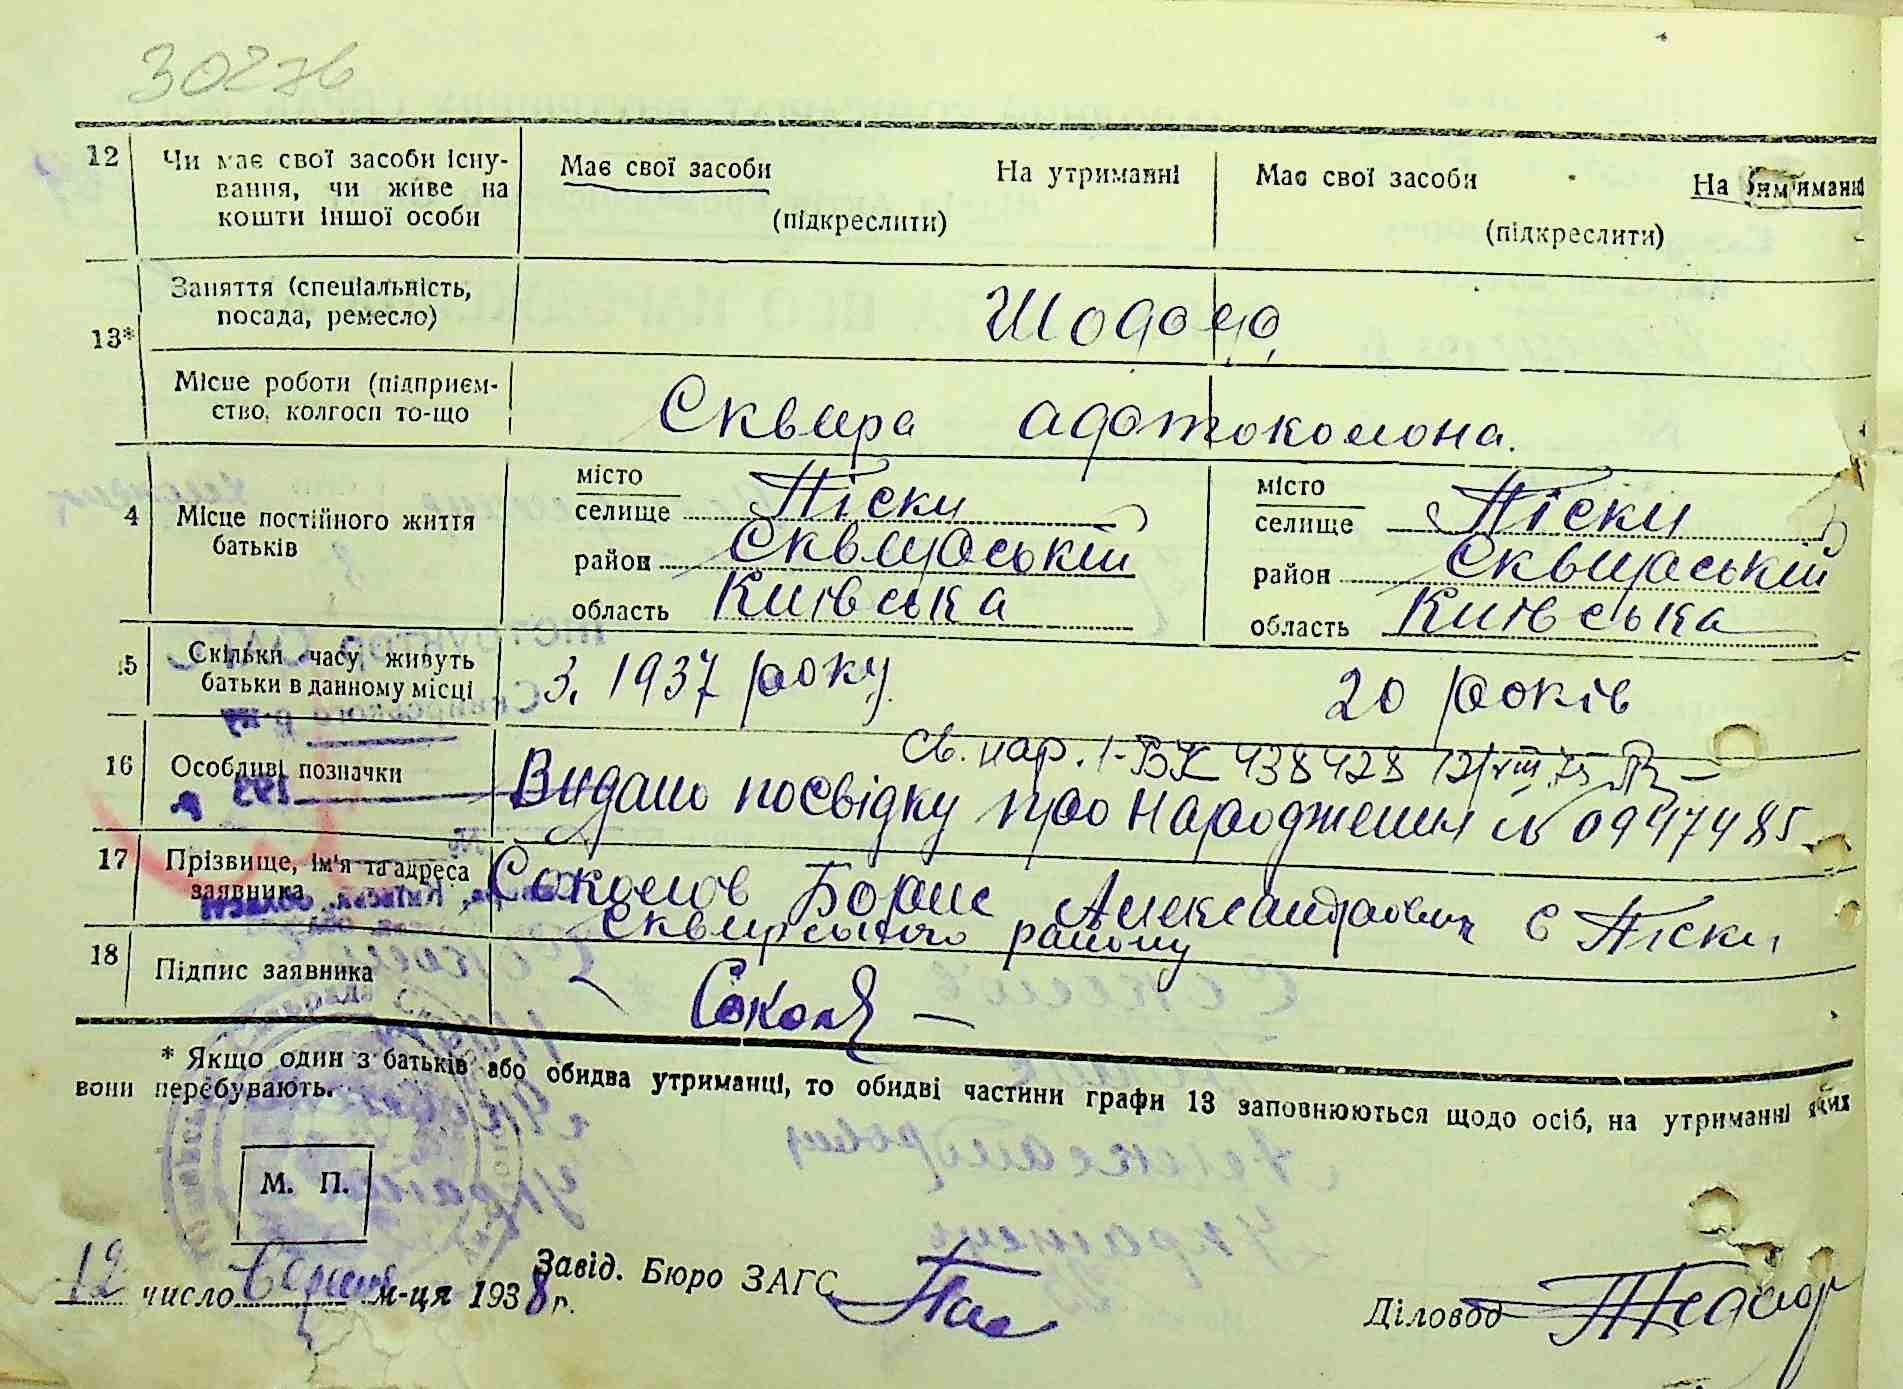 30276
12 Чи має свої засоби існування, чи живе на кошти іншої особи
Має свої засоби На утриманні
(підкреслити)
Має свої засоби На утриманні
(підкреслити)
13* Заняття (спеціальність, посада, ремесло)
Шофер
Місце роботи (підприємство, колгосп то-що
Сквира автоколона.
4 Місце постійного життя батьків
місто
селище Піски
район Сквирській
область Київська
місто
селище Піски
район Сквирській
область Київська
15 Скільки часу живуть батьки в данному місці
З 1937 року
20 років
16 Особливі позначки
Св. нар. 1-БК 438428 12/VIII 75
Видано посвідку про народження № 0947485
17 Прізвище, ім'я та адреса заявника
Соколов Борис Александрович с Піски
Сквирського району
18 Підпис заявника
Сокол
* Якщо один з батьків або обидва утриманці, то обидві частини графи 13 заповнюються щодо осіб, на утриманні яких
вони перебувають.
М. П.
12 число м-ця 1938 р.
Завід. Бюро ЗАГС
Діловод